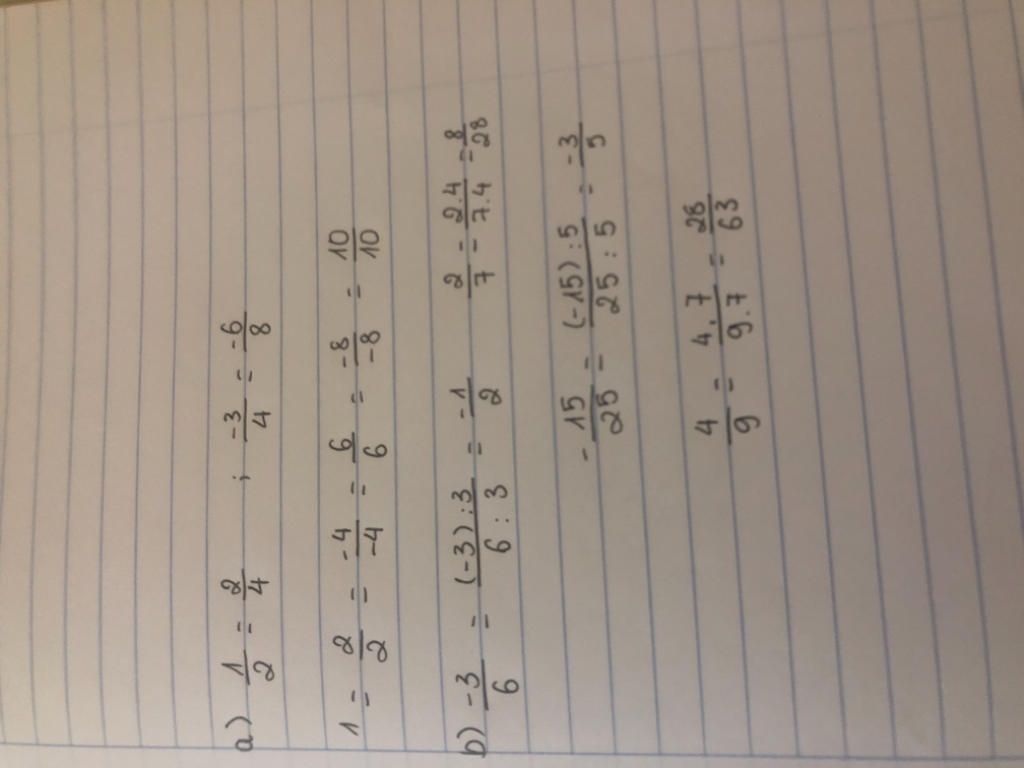 a) 1/2 = 2/4 ; -3/4 = -6/8
1 = 2/2 = -4/-4 = 6/6 = -8/-8 = 10/10
b) -3/6 = (-3):3/6:3 = -1/2 2/7 = 2.4/7.4 = 8/28
-15/25 = (-15):5/25:5 = -3/5
4/9 = 4.7/9.7 = 28/63